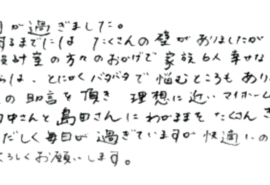 月が過ぎました。
するまでには たくさんの壁がありましたが
設計室の方々のおかげで家族6人幸せな
らは、とにかくバタバタで悩むところもあり
の助言を頂き 理想に近いマイホーム
中さんと島田さんにわがままをたくさん
だしく毎日が過ぎていますが 快適に の
よろしくお願いします。